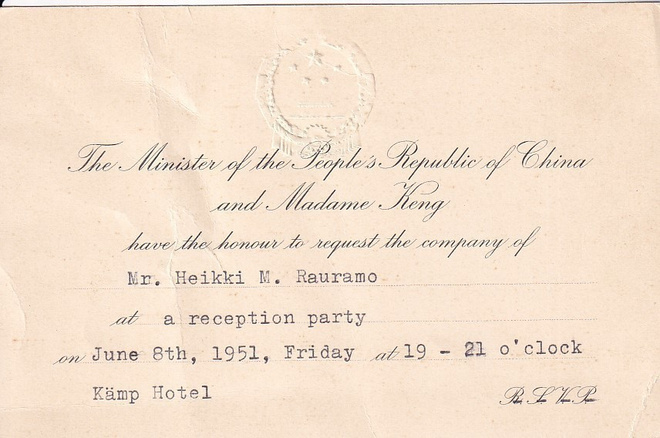 The Minister of the People's Republic of China
and Madame Keng
have the honour to request the company of
Mr. Heikki M. Rauramo
at a reception party
on June 8th, 1951, Friday at 19 - 21 o'clock
Kämp Hotel R. S. V. P.